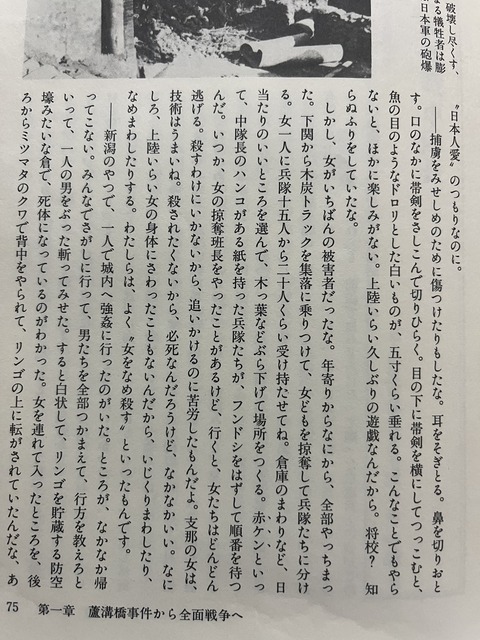 破壊し尽くす、
る犠牲者は膨
日本軍の砲爆
〝日本人愛〟のつもりなのに。
――捕虜をみせしめのために傷つけたりもしたな。耳をそぎとる。鼻を切りおと
す。口のなかに帯剣をさしこんで切りひらく。目の下に帯剣を横にしてつっこむと、
魚の目のようなドロリとした白いものが、五寸くらい垂れる。こんなことでもやら
ないと、ほかに楽しみがない。上陸いらい久しぶりの遊戯なんだから。将校？　知
らぬふりをしていたな。
しかし、女がいちばんの被害者だったな。年寄りからなにから、全部やっちまっ
た。下関から木炭トラックを集落に乗りつけて、女どもを掠奪して兵隊たちに分け
る。女一人に兵隊十五人から二十人くらい受け持たせてね。倉庫のまわりなど、日
当たりのいいところを選んで、木っ葉などぶら下げて場所をつくる。赤ケンといっ
て、中隊長のハンコがある紙を持った兵隊たちが、フンドシをはずして順番を待つ
んだ。いつか、女の掠奪班長をやったことがあるけど、行くと、女たちはどんどん
逃げる。殺すわけにいかないから、追いかけるのに苦労したもんだよ。支那の女は、
技術はうまいね。殺されたくないから、必死なんだろうけど、なかなかいい。なに
しろ、上陸いらい女の身体にさわったこともないんだから、いじくりまわしたり、
なめまわしたりする。わたしらは、よく〝女をなめ殺す〟といったもんです。
――新潟のやつで、一人で城内へ強姦に行ったのがいた。ところが、なかなか帰
ってこない。みんなでさがしに行って、男たちを全部つかまえて、行方を教えろと
いって、一人の男をぶった斬ってみせた。すると白状して、リンゴを貯蔵する防空
壕みたいな倉で、死体になっているのがわかった。女を連れて入ったところを、後
ろからミツマタのクワで背中をやられて、リンゴの上に転がされていたんだな、あ
75　第一章　蘆溝橋事件から全面戦争へ